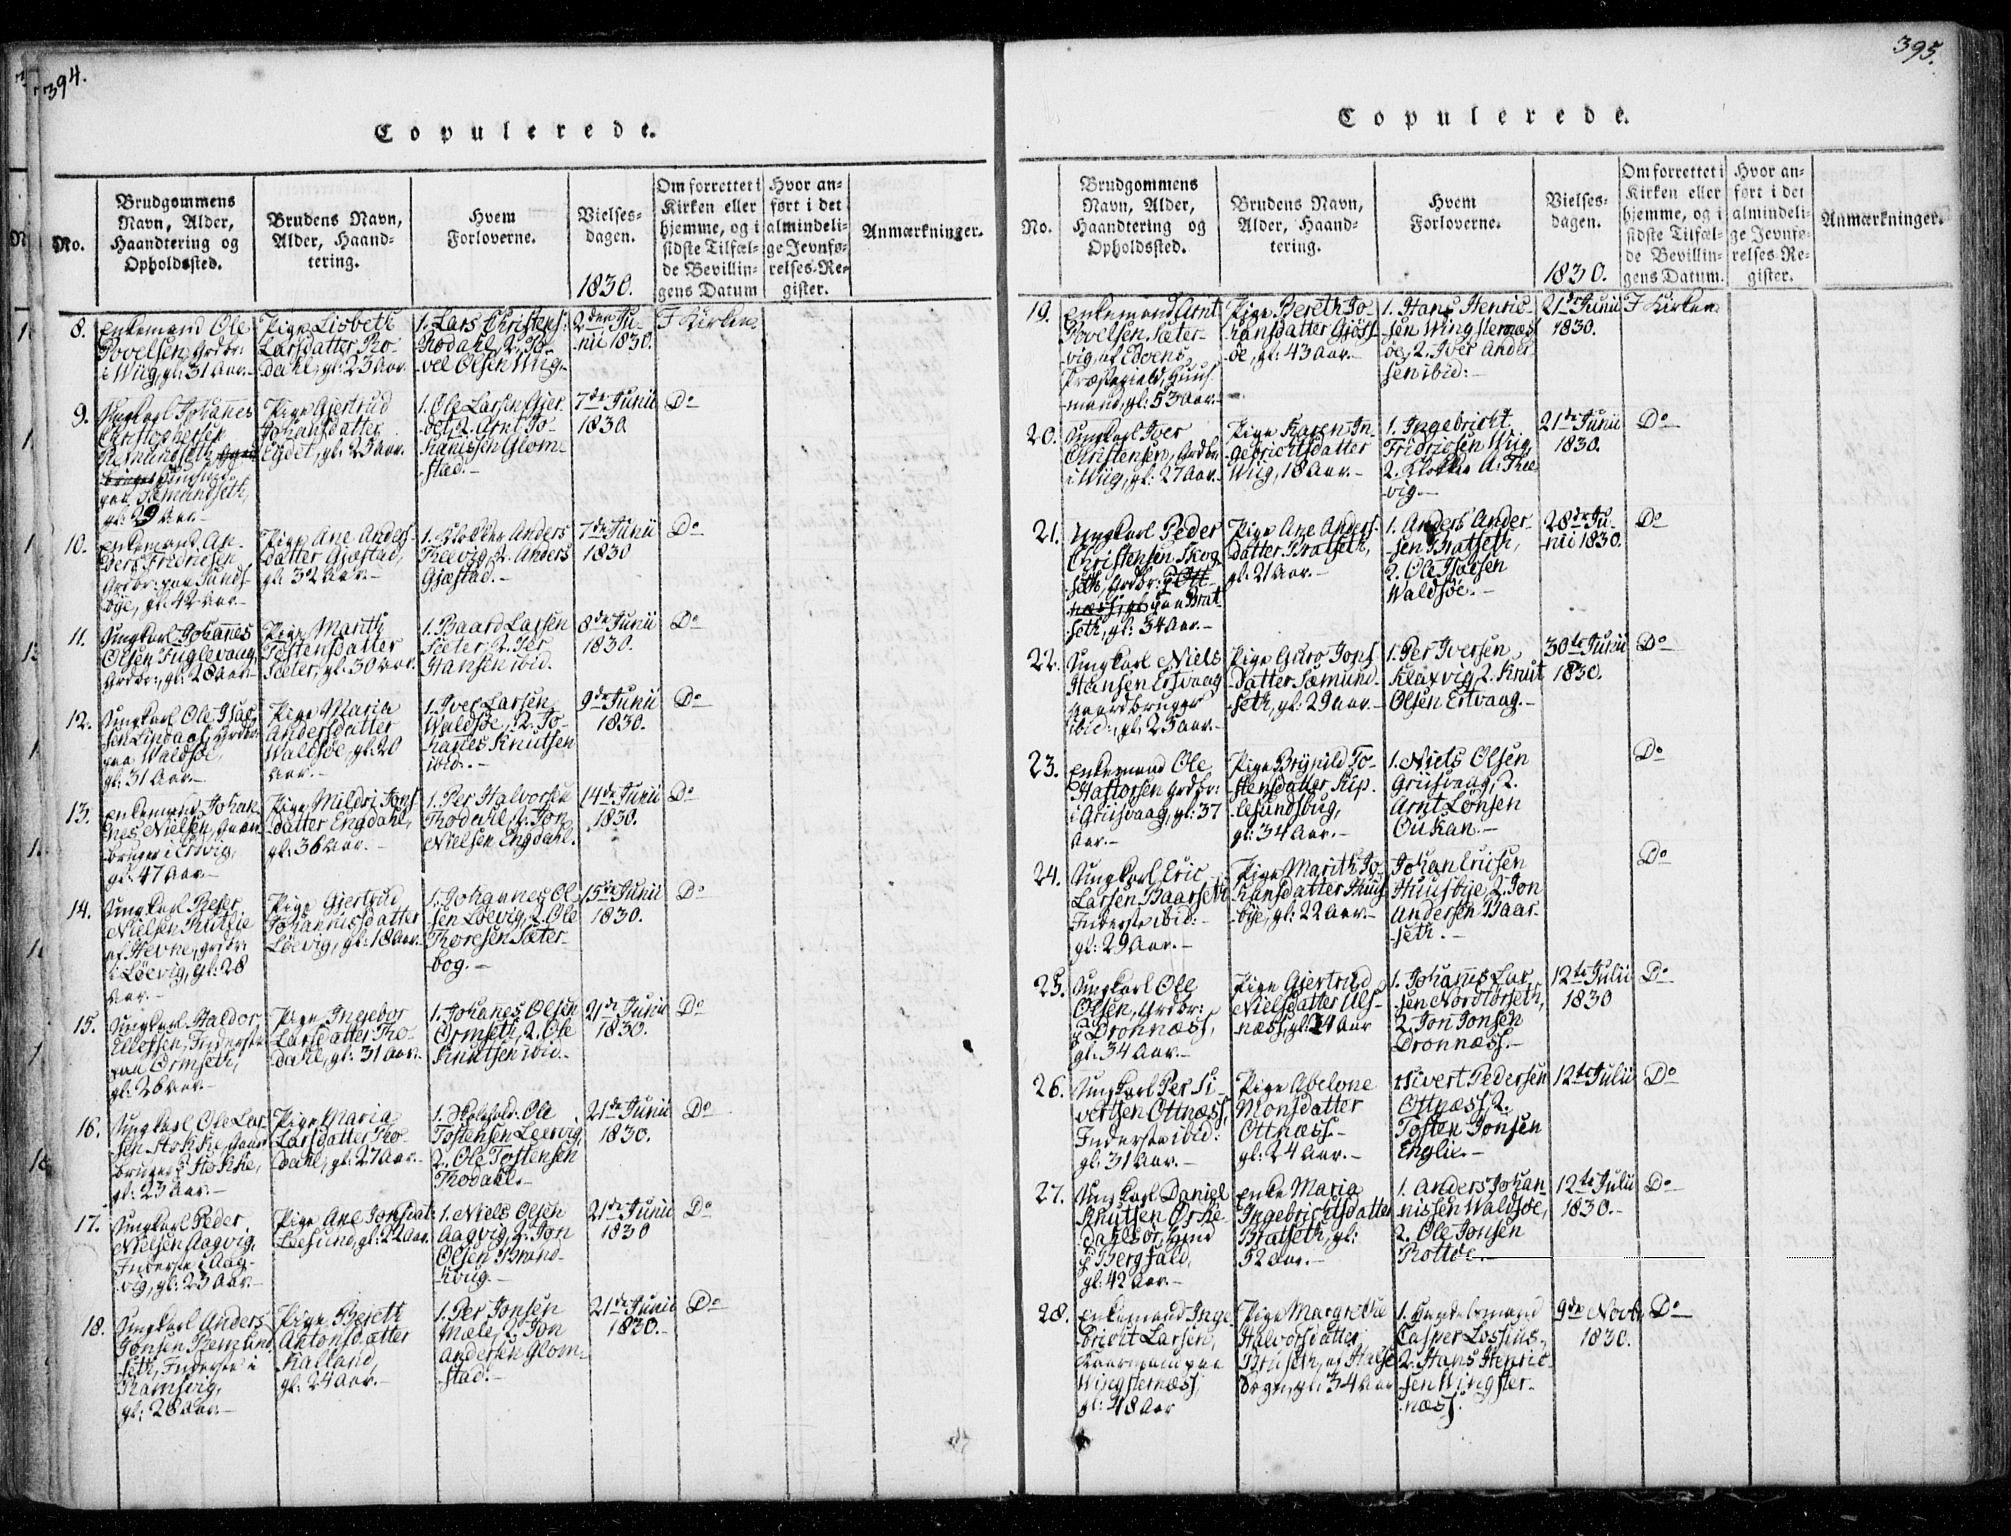 394.
Copulerede.
No.
Brudgommens
Navn, Alder,
Haandtering og
Opholdssted.
Brudens Navn,
Alder, Haand-
tering.
Hvem
Forloverne.
Vielses-
dagen.
1830.
Om forrettet i
Kirken eller
hjemme, og i
sidste Tilfæl-
de Bevillin-
gens Datum
Hvor an-
ført i det
almindeli-
ge Jevnfø-
relses-Re-
gister.
Anmærkninger.
8.
Enkemand Ole
Povelsen Grdbr:
i Wiig, gl: 31 Aar.
Pige Lisbeth
Larsdatter Ro-
dahl, gl: 23 Aar
1. Lars Christens:
Rodahl, 2. Po-
vel Olsen Wiig.
2den Ju-
nii 1830.
I Kirken
9.
Ungkarl Johannes
Christophersen
Remundseth
paa Remundseth,
gl: 29 Aar.
Pige Gjertrud
Johansdatter
Eydet, gl: 23 Aar.
1. Ole Larsen Ejer-
det, 2. Arnt Jo-
hanissen Glom-
stad.
7de Junii
1830.
Do
10.
Enkemand An-
ders Fredriesen
Grdbr: paa Sunds-
bye, gl: 42 Aar.
Pige Ane Anders-
datter Gjæstad,
gl: 32 Aar.
1. Klokker Anders
Theevig, 2. Anders
Gjæstad.
7de Junii
1830
Do
11.
Ungkarl Johannes
Olsen Fuglevaag,
Grdbr:, gl: 28 Aar
Pige Marith
Tostensdatter
Sæter, gl: 30 Aar.
1. Baard Larsen
Sæter, 2. Per
Hansen ibid.
8de Junii
1830.
Do
12.
Ungkarl Ole Isac-
sen Lindaas, Grdbr:
paa Waldsøe,
gl: 31 Aar.
Pige Maria
Andersdatter
Waldsøe, gl: 20
Aar.
1. Iver Larsen
Waldsøe, 2. Jo-
hanes Knutsen
ibid.
9de Junii
1830.
Do
13.
Enkemand Johan-
nes Nielsen, Gaard-
bruger i Ervig,
gl: 47 Aar.
Pige Mildri Jons-
datter Engdahl,
gl: 36 Aar.
1. Per Halvorsen
Rodahl, 2. Jon
Nielsen Engdahl.
14de Junii
1830.
Do
14.
Ungkarl Peter
Nielsen
af Hevne, Grdbr:
i Löevig, gl: 28
Aar.
Pige Gjertrud
Johannisdatter
Löevig, gl: 18 Aar.
1. Johannes Ol-
sen Löevig, 2. Ole
Thoresen Sæter-
bog.
15de Junii
1830.
Do
15.
Ungkarl Haldor
Inderste
paa Ormseth,
gl: 26 Aar.
Pige Ingebor
Larsdatter Ro-
dahl, gl: 31 Aar.
1. Johannes Olsen
Ormseth, 2. Ole
Knutsen ibid.
21de Junii
1830.
Do
16.
Ungkarl Ole Lar-
sen Stokke, Gaard-
bruger i Stokke,
gl: 23 Aar.
Pige Maria
Larsdatter Ro-
dahl, gl: 27 Aar.
1. Skolehold: Ole
Tostensen Leervig,
2. Ole Tostensen
Rodahl.
21de Junii
1830.
Do
17.
Ungkarl Peder
Nielsen Aagvig,
Inderste i Aag-
vig, gl: 23 Aar.
Pige Ane Jonsdat:
Leesund, gl: 22 Aar.
1. Niels Olsen
Aagvig, 2. Jon
Olsen Brand-
viig.
21de Junii
1830
Do
18.
Ungkarl Anders
Jonsen Remund-
seth, Inderste i
Ramsvig,
gl: 28 Aar.
Pige Bereth
Antonsdatter
Kalland,
gl: 24 Aar.
1. Per Jonsen
Mæle, 2. Jon
Andersen Glom-
stad.
21de Junii
1830.
Do
395.
Copulerede.
No.
Brudgommens
Navn, Alder,
Haandtering og
Opholdssted.
Brudens Navn,
Alder, Haand-
tering.
Hvem
Forloverne.
Vielses-
dagen.
1830.
Om forrettet i
Kirken eller
hjemme, og i
sidste Tilfæl-
de Bevillin-
gens Datum.
Hvor an-
ført i det
almindeli-
ge Jevnfø-
relses-Re-
gister.
Anmærkninger.
19.
Enkemand Arnt
Povelsen Sæter-
vig, af Edøens
Præstegield, Huus-
mand, gl: 53 Aar.
Pige Bereth Jo-
hansdatter Gjøss-
øe, gl: 43 Aar.
1. Hans Henric-
sen Wingsternæs
øe, 2. Iver Ander-
sen ibid:
21de Junii
1830.
I Kirken
20.
Ungkarl Iver
Christensen, Grdbr:
i Wiig, gl: 27 Aar.
Pige Karen In-
gebrichtsdatter
Wiig, 18 Aar.
1. Ingebricht
Fridricsen Wiig,
2. Klokker A: Thee-
vig.
21de Junii
1830.
Do
21.
Ungkarl Peder
Christensen Skog-
seth, Grdbr: i Ott-
næss, gl: paa Brat-
seth, gl: 34 Aar.
Pige Ane Anders-
datter Bratseth,
gl: 21 Aar.
1. Anders Ander-
sen Bratseth,
2. Ole Isacsen
Waldsøe.
28de Ju-
nii 1830.
Do
22.
Ungkarl Niels
Hansen Ertvaag
Gaardbruger
ibid:, gl: 23 Aar.
Pige Guro Jons-
datter Sæmund-
seth, gl: 29 Aar.
1. Per Iversen
Klaxvig, 2. Knut
Olsen Ertvaag.
30te Junii
1830.
Do
23.
Enkemand Ole
Haftorsen Grdbr:
i Griisvaag, gl: 37
Aar.
Pige Brynild To-
stensdatter Kip-
lesundsbug,
gl: 34 Aar.
1. Niels Olsen
Griisvaag, 2.
Arnt Lønsen
Oukan.
Do
24.
Ungkarl Eric
Larsen Baarseth
Inderste ibid:
gl: 29 Aar.
Pige Marith Jo-
hansdatter Huus-
bye, gl: 22 Aar.
Johan Ericsen
Huusbye, 2. Jon
Andersen Baar-
seth.
Do
25.
Ungkarl Ole
Olsen, Grdbr:
i Dronnæss,
gl: 34 Aar.
Pige Gjertrud
Nielsdatter Uls-
næss, gl: 24 Aar
1. Johannis Lar-
sen Nordtørseth,
2. Jon Jonsen
Dronnæss.
12te Julii
1830
Do
26.
Ungkarl Per Si-
vertsen Ottnæss,
Inderste ibid:
gl: 31 Aar.
Pige Abelone
Monsdatter
Ottnæss.
gl: 24 Aar.
1. Sivert Pedersen
Ottnæss, 2.
Tosten Jonsen
Englie.
12te Julii
Do
27.
Ungkarl Daniel
Knutsen Orke-
dalsør, Smed
i Bergsfald,
gl: 42 Aar.
Enke Maria
Ingebrichtsdatter
Bratseth, gl:
52 Aar.
1. Anders Johan-
nissen Waldsøe,
2. Ole Jonsen
Rottøe.
12te Julii
1830.
Do
28.
Enkemand Inge-
bricht Larsen,
paa
Wingsternæss,
gl: 48 Aar
Pige Margrethe
Halvorsdatter
Bruseth, af Halse
Sogn, gl: 34 Aar
1. Handelsmand
Casper Lossius,
2. Hans Henric-
sen Wingster-
næss.
9de Novbr
1830.
Do